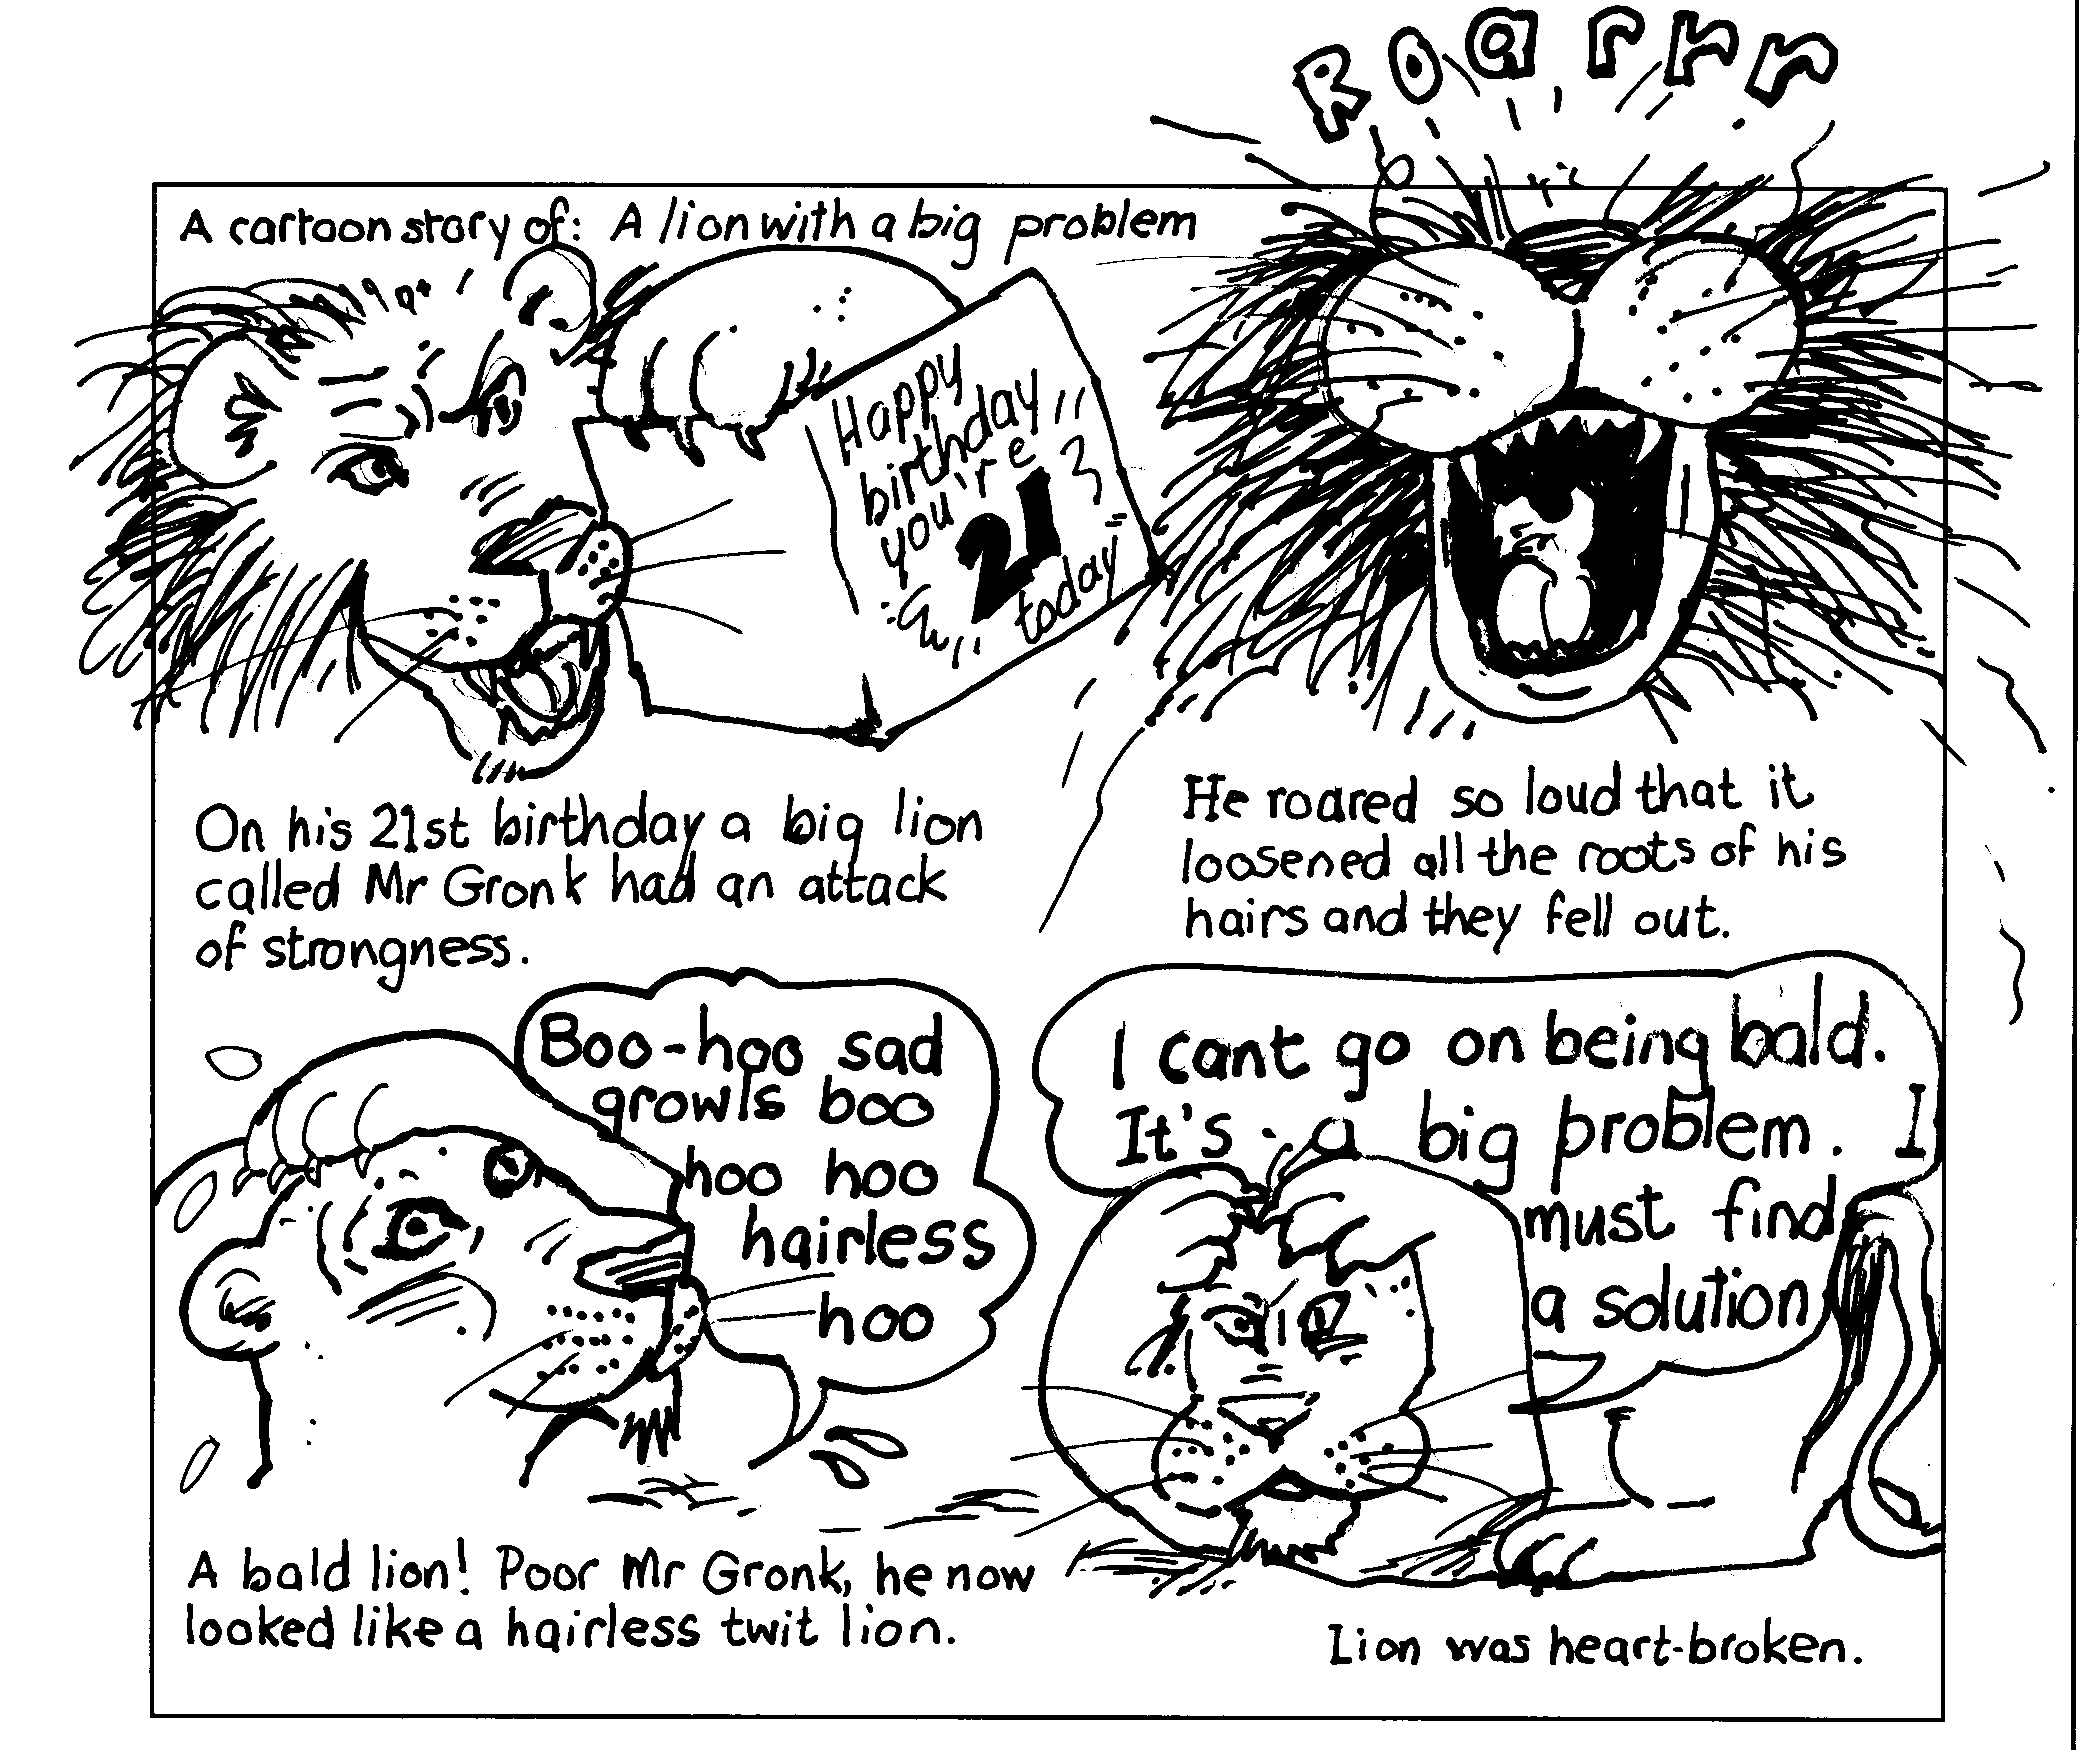 Roarrr
A cartoon story of: A lion with a big problem
Happy
birthday
you're
21
today
On his 21st birthday a big lion
called Mr Gronk had an attack
of strongness.
He roared so loud that it
loosened all the roots of his
hairs and they fell out.
Boo-hoo sad
growls boo
hoo hoo
hairless
hoo
A bald lion! Poor Mr Gronk, he now
looked like a hairless twit lion.
I cant go on being bald.
It's a big problem. I
must find
a solution
Lion was heart-broken.